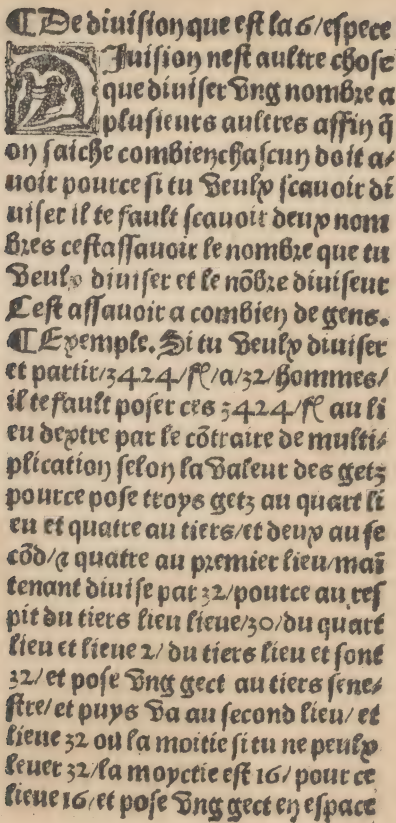 ¶ De diuision que est la 6/espece
Diuision nest aultre chose
que diuiser vng nombre a
plusieurs aultres affin q̄
on saiche combien chascun doit a/
uoir pource si tu veulx scauoir di
uiser il te fault scauoir deux nom
bres cest assauoir le nombre que tu
veulx diuiser et le nōbre diuiseur
Cest assauoir a combien de gens.
¶ Exemple. Si tu veulx diuiser
et partir/3424/fl/a/32/hommes/
il te fault poser ces 3424/fl au li
eu dextre par le cōtraire de multi/
plication selon la valeur des getz
pource pose troys getz au quart li
eu et quatre au tiers/et deux au se
cōd/⁊ quatre au premier lieu/mai
tenant diuise par 32/pource au res
pit du tiers lieu lieue/30/du quart
lieu et lieue 2/ du tiers lieu et sont
32/et pose vng gect au tiers sene/
stre/et puys va au second lieu/ et
lieue 32 ou la moitie si tu ne peulx
leuer 32/la moyctie est 16/ pour ce
lieue 16/et pose vng gect en espace